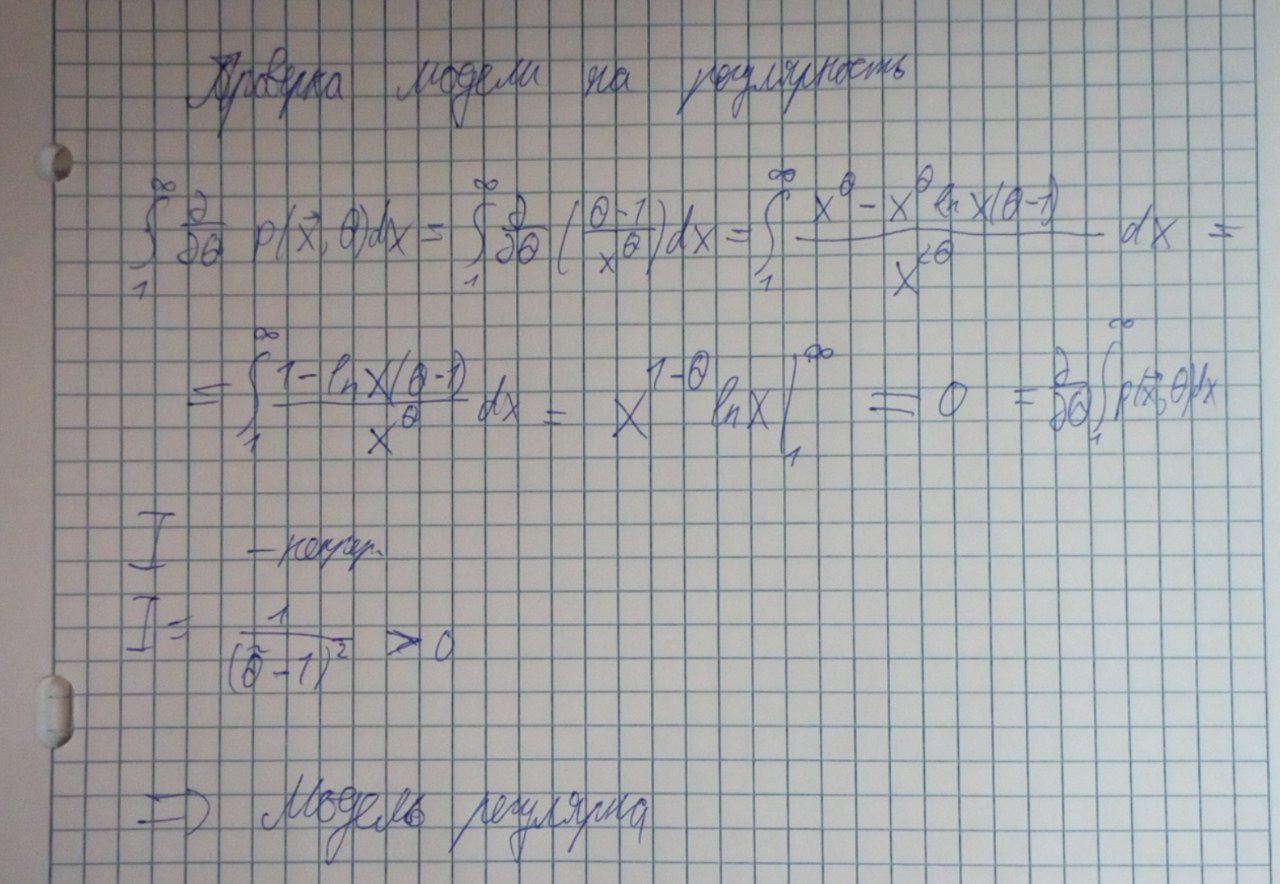 Проверка модели на регулярность
∫₁^∞ ∂/∂θ p(x⃗, θ)dx = ∫₁^∞ ∂/∂θ ((θ-1)/x^θ)dx = ∫₁^∞ (x^θ - x^θ ln x(θ-1))/x^(2θ) dx =
= ∫₁^∞ (1 - ln x(θ-1))/x^θ dx = x^(1-θ) ln x |₁^∞ = 0 = ∂/∂θ ∫₁^∞ p(x⃗, θ)dx
I - непрер.
I = 1/(θ̃-1)² > 0
⇒ Модель регулярна